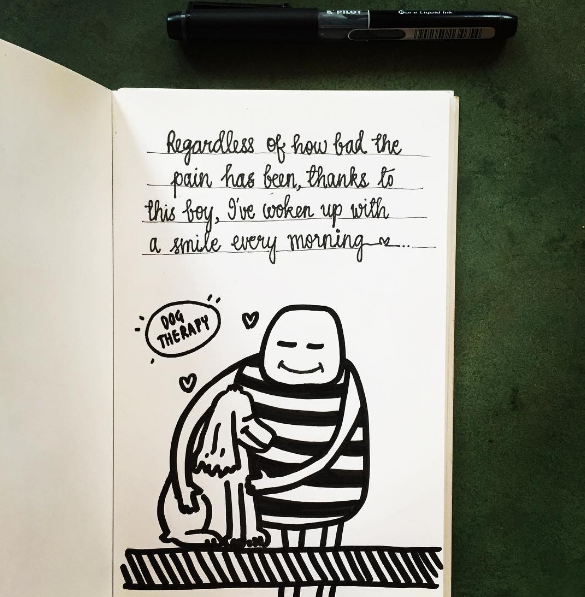 PILOT
Pure Liquid Ink
Regardless of how bad the
pain has been, thanks to
this boy, I've woken up with
a smile every morning...
DOG
THERAPY